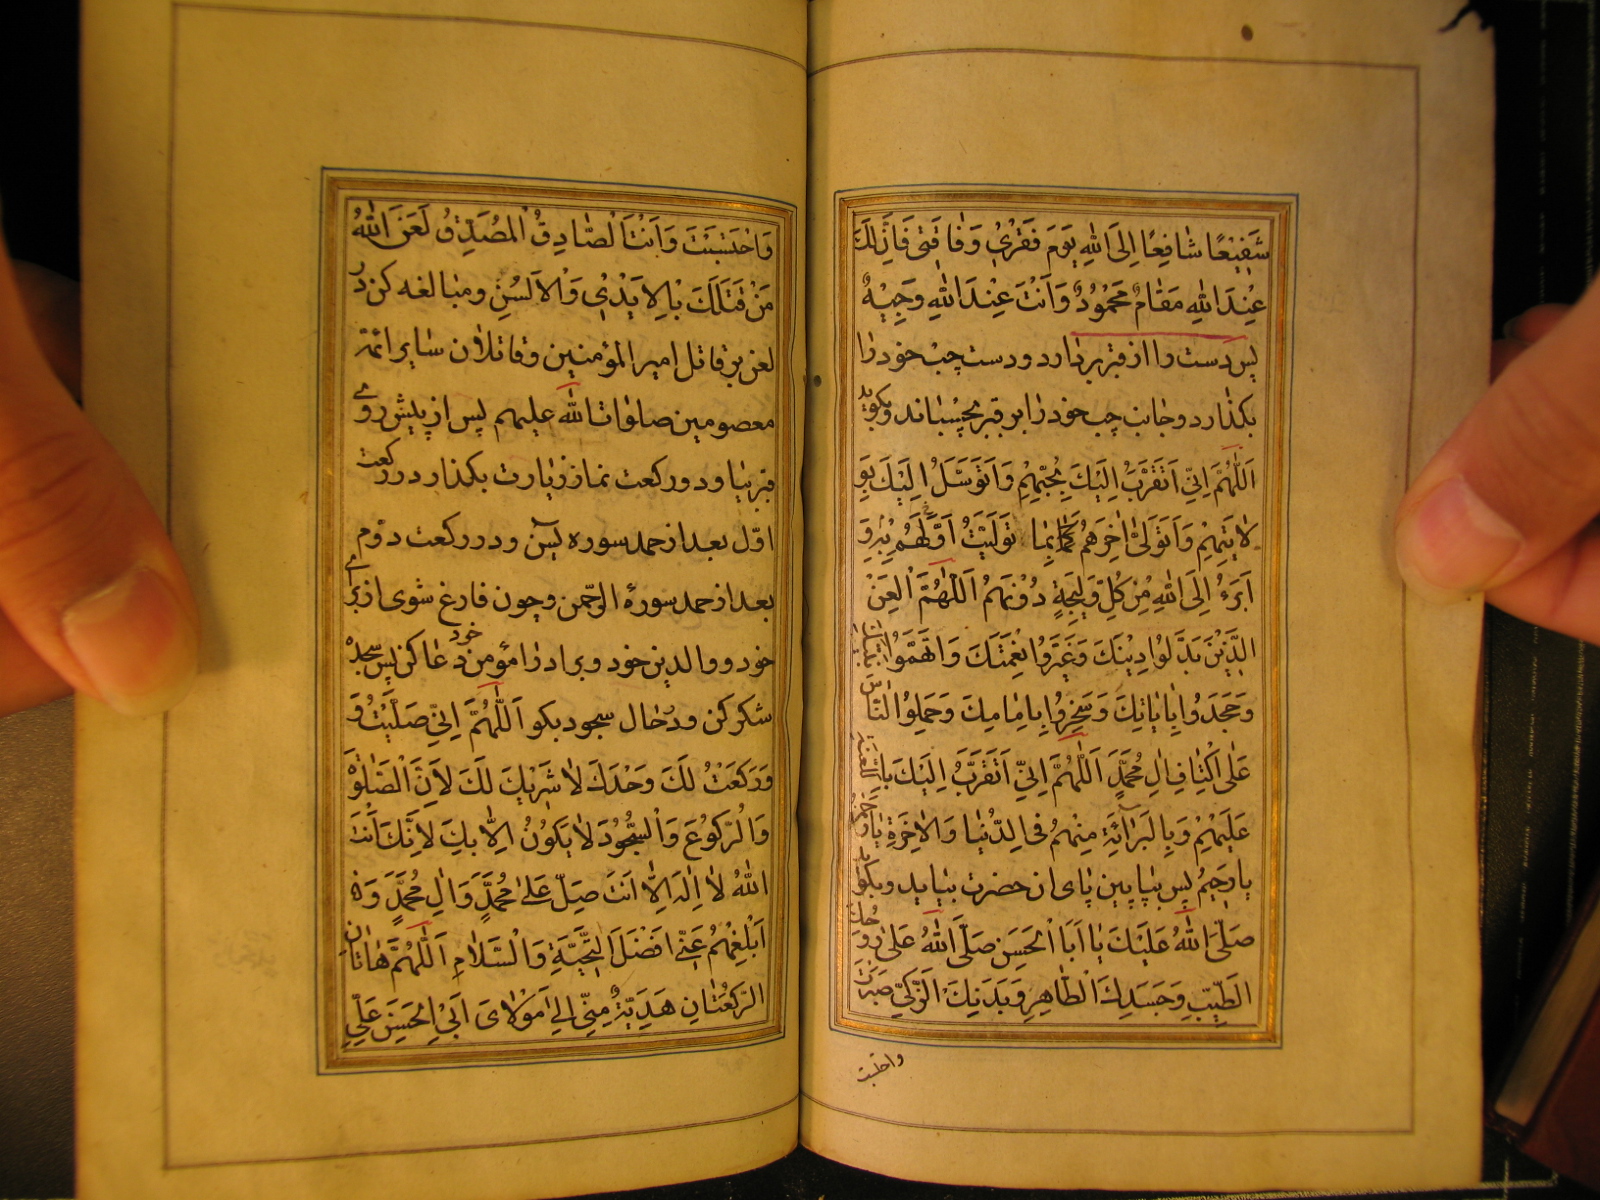 شَفِيْعًا شَافِعًا اِلَى اللّٰهِ يَوْمَ فَقْرِيْ وَفَاقَتِى فَاِنَّ لَكَ
عِنْدَ اللّٰهِ مَقَامٌ مَحْمُودٌ وَاَنْتَ عِنْدَ اللّٰهِ وَجِيْهٌ
پس دست را از قبر بردارد و دست چپ خود را
بکذارد و جانب چپ خود را بر قبر بچسباند و بکوید
اَللّٰهُمَّ اِنّىِ اَتَقَرَّبُ اِلَيْكَ بِحُبِّهِمْ وَاَتَوَسَّلُ اِلَيْكَ بِوِ
لَايَتِهِمْ وَاَتَوَلّىٰ اٰخِرَهُمْ بِمَا تَوَلَّيْتُ اَوَّلَهُمْ وَ
اَبْرَءُ اِلَى اللّٰهِ مِنْ كُلِّ وَلِيْجَةٍ دُوْنَهُمْ اَللّٰهُمَّ الْعَنْ
الَّذِيْنَ بَدَّلُوا دِيْنَكَ وَغَيَّرُوا نِعْمَتَكَ وَاتَّهَمُوا نَبِيَّكَ
وَجَحَدُوا بِاٰيَاتِكَ وَسَخِرُوا بِاِمَامِكَ وَحَمَلُوا النَّاسَ
عَلٰى اَكْتَافِ اٰلِ مُحَمَّدٍ اَللّٰهُمَّ اِنّىِ اَتَقَرَّبُ اِلَيْكَ بِاللَّعْنَةِ
عَلَيْهِمْ وَبِالْبَرَائَةِ مِنْهُمْ فِى الدُّنْيَا وَالاٰخِرَةِ يَا رَحْمٰنُ
یا رحیم پس بپایین پای ان حضرت بیاید و بکوید
صَلَّى اللّٰهُ عَلَيْكَ يَا اَبَا الْحَسَنِ صَلَّى اللّٰهُ عَلٰى رُوحِكَ
الطَّيِّبِ وَجَسَدِكَ الْطَّاهِرِ وَبَدَنِكَ الزَّكِيِّ صَبَرْتَ
واحتسبت
وَاحْتَسَبْتَ وَاَنْتَ الْصَّادِقُ الْمُصَدِّقُ لَعَنَ اللّٰهُ
مَنْ قَتَلَكَ بِالاَيْدِيْ وَالْاَلْسُنِ ومبالغه کن در
لعن بر قاتل امیر المؤمنین و قاتلان سایر ائمّة
معصومین صلوات الله علیهم پس از پیش روی
قبر بیا و دو رکعت نماز زیارت بکذار در رکعت
اوّل بعد از حمد سوره یس و در رکعت دوم
بعد از حمد سورهٔ الرحمن و چون فارغ شوی از برای
خود و والدین خود و برادرا مؤمن خود دعا کن پس سجده
شکر کن و در حال سجود بکو اَللّٰهُمَّ اِنّىِ صَلَّيْتُ وَ
وَرَكَعْتُ لَكَ وَحْدَكَ لَا شَرِيْكَ لَكَ لِاَنَّ الْصَّلٰوةَ
وَالْرُّكُوْعَ وَالْسُّجُودَ لَا يَكُوْنُ اِلَّا بِكَ لِاَنَّكَ اَنْتَ
اللّٰهُ لَا اِلٰهَ اِلَّا اَنْتَ صَلِّ عَلٰى مُحَمَّدٍ وَاٰلِ مُحَمَّدٍ وَ
اَبْلِغْهُمْ عَنّىِ اَفْضَلَ الْتَّحِيَّةِ وَالْسَّلَامِ اَللّٰهُمَّ هَاتَانِ
الرَّكْعَتَانِ هَدِيَّةٌ مِنِّى اِلىٰ مَوْلَاىَ اَبِى الْحَسَنِ عَلِيِّ